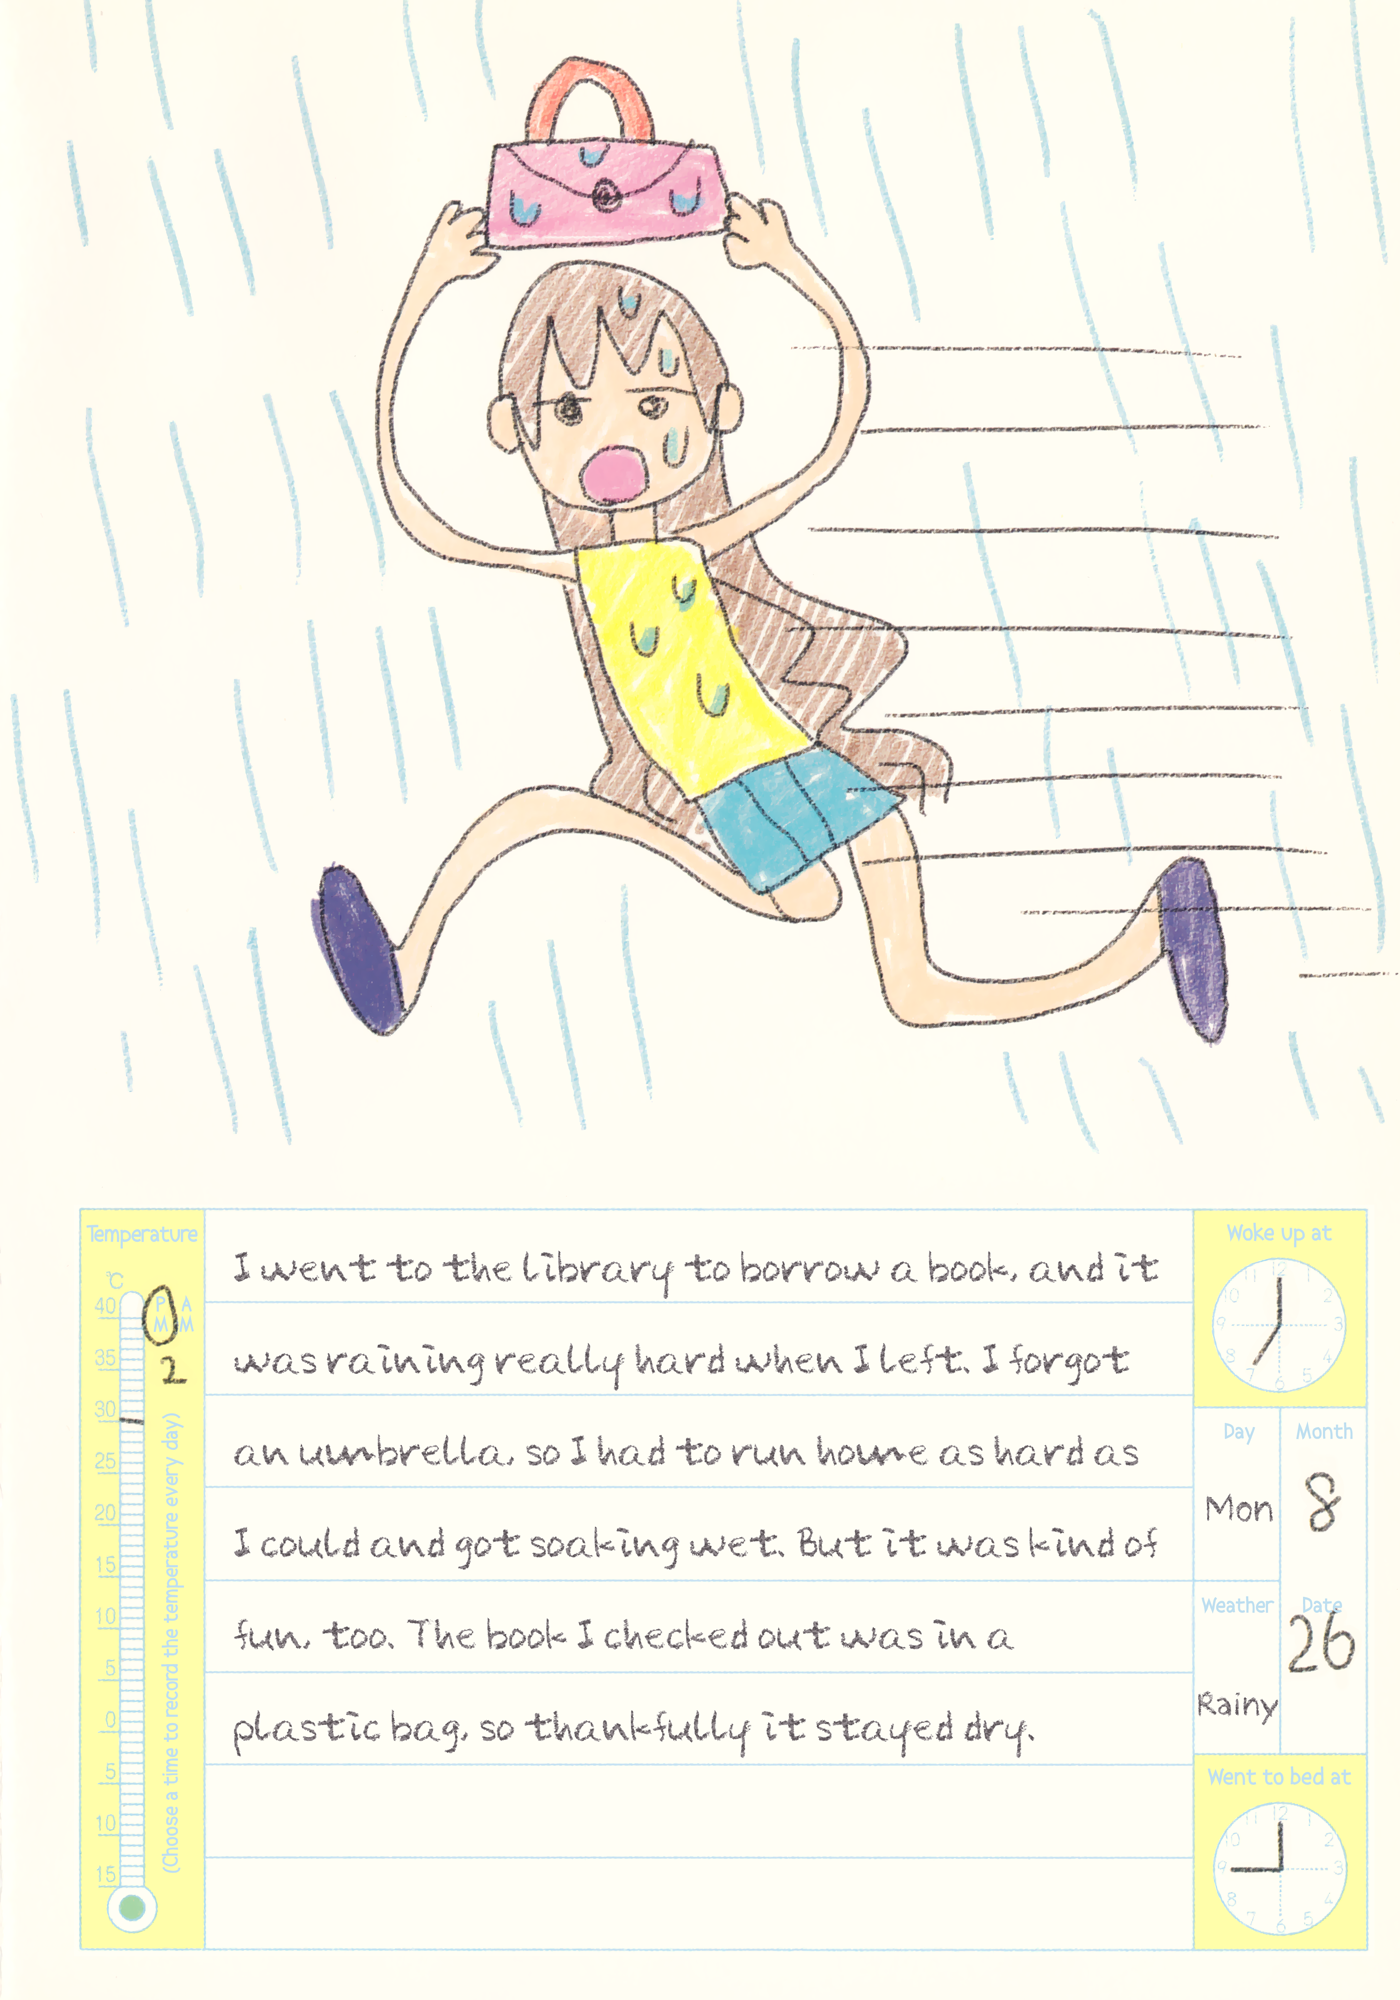 Temperature
℃
40
35
30
25
20
15
10
5
0
5
10
15
PM AM
2
(Choose a time to record the temperature every day)
I went to the library to borrow a book, and it
was raining really hard when I left. I forgot
an umbrella, so I had to run home as hard as
I could and got soaking wet. But it was kind of
fun, too. The book I checked out was in a
plastic bag, so thankfully it stayed dry.
Woke up at
12 1 2 3 4 5 6 7 8 9 10 11
Day
Mon
Month
8
Weather
Rainy
Date
26
Went to bed at
12 1 2 3 4 5 6 7 8 9 10 11